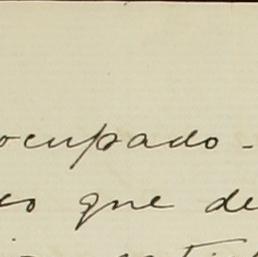 ocupado -
eo que de